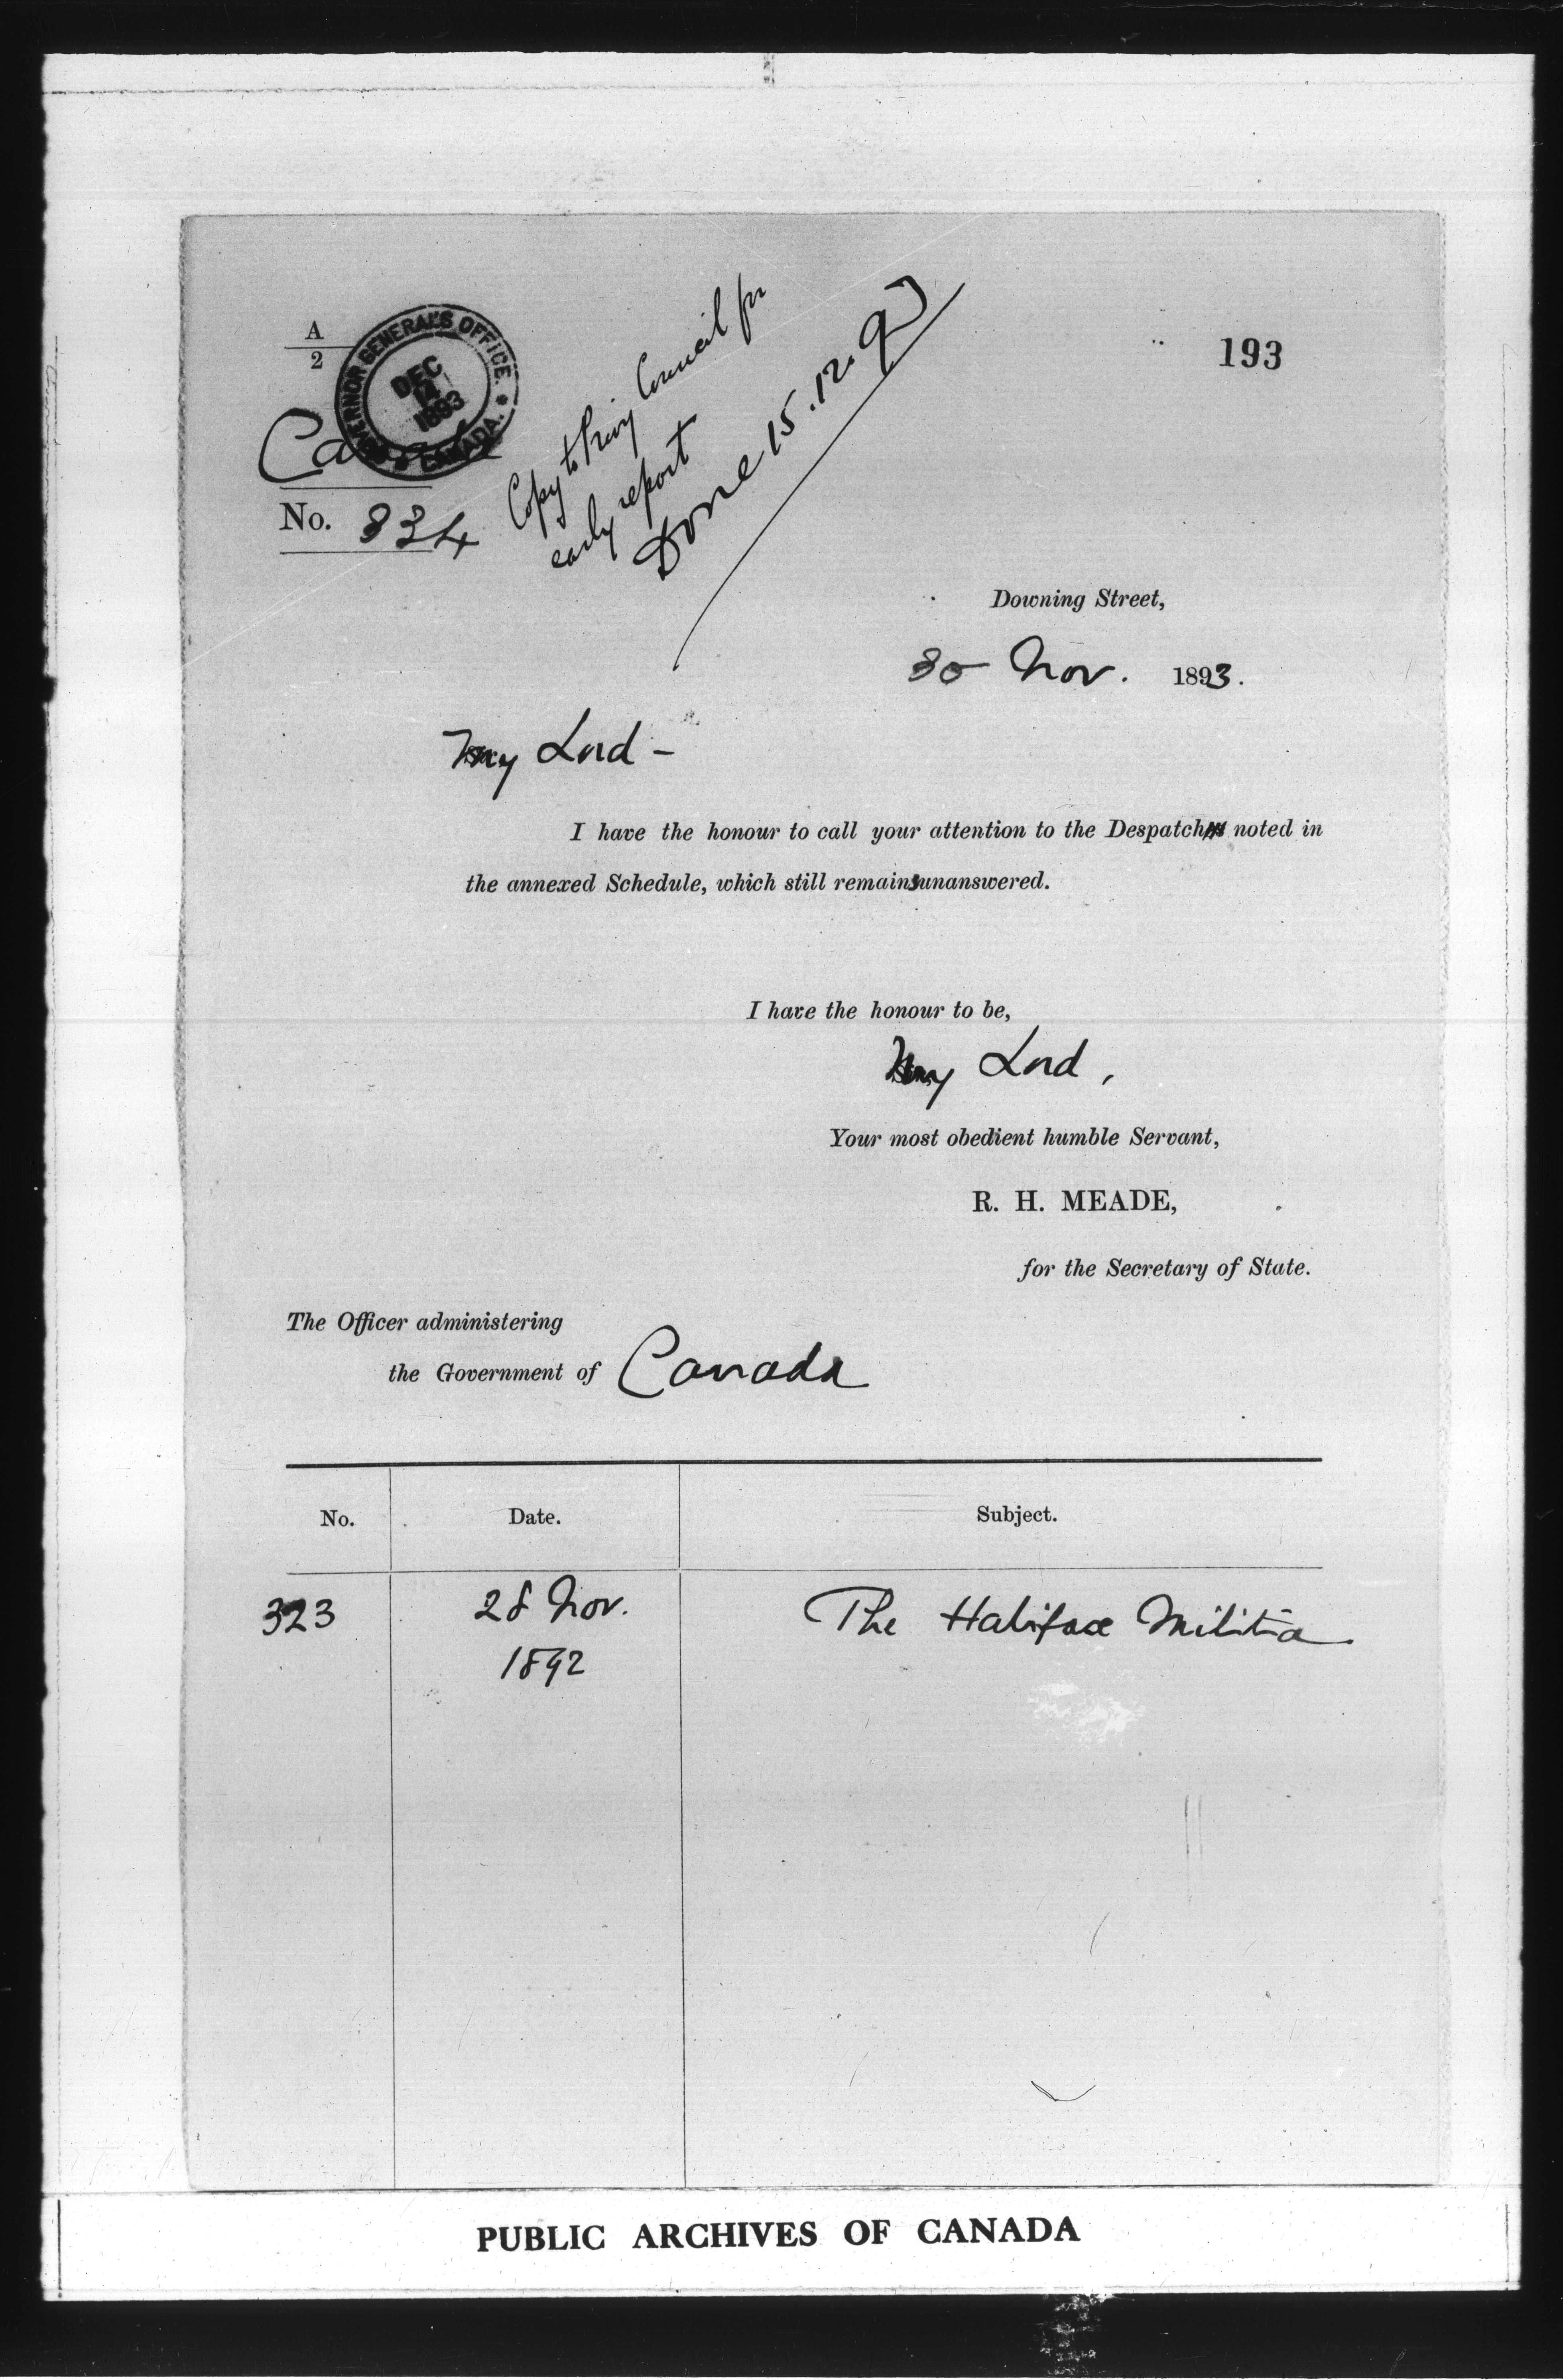 193
A
2
GOVERNOR GENERAL'S OFFICE.
DEC
14
1893
* CANADA. *
Canada
No. 334
Copy to Privy Council for
early report
Done 15.12.93
Downing Street,
30 Nov. 1893.
My Lord –
I have the honour to call your attention to the Despatch noted in
the annexed Schedule, which still remains unanswered.
I have the honour to be,
My Lord,
Your most obedient humble Servant,
R. H. MEADE,
for the Secretary of State.
The Officer administering
the Government of Canada
No. Date. Subject.
323 28 Nov. The Halifax Militia
1892
PUBLIC ARCHIVES OF CANADA